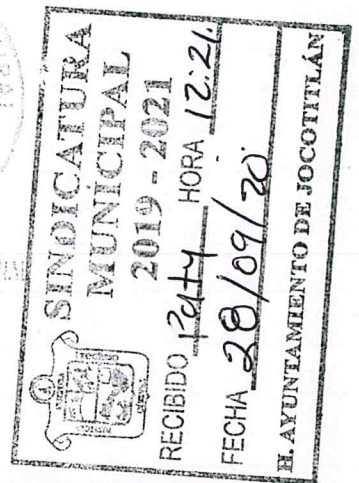 SINDICATURA
MUNICIPAL
2019 - 2021
RECIBIDO Paty HORA 12:21.
FECHA 28/09/20.
H. AYUNTAMIENTO DE JOCOTITLÁN